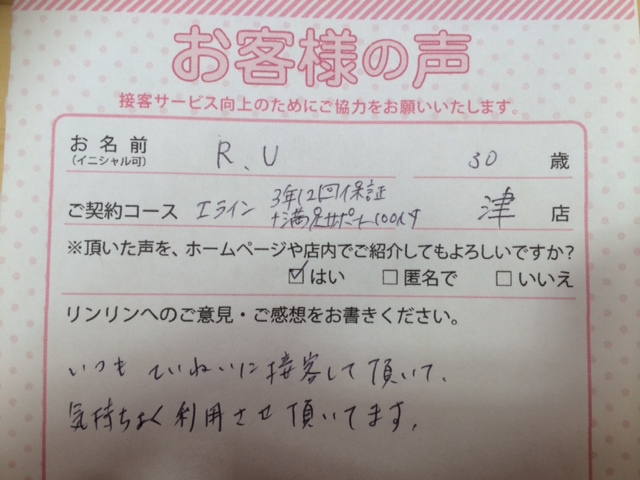 お客様の声
接客サービス向上のためにご協力をお願いいたします。
お名前 R、U 30 歳
(イニシャル可)
3年12回保証
ご契約コース Iライン 津 店
+満足サポート100%
※頂いた声を、ホームページや店内でご紹介してもよろしいですか?
☑はい □匿名で □いいえ
リンリンへのご意見・ご感想をお書きください。
いつも ていねいに接客して頂いて、
気持ちよく利用させ頂いてます。